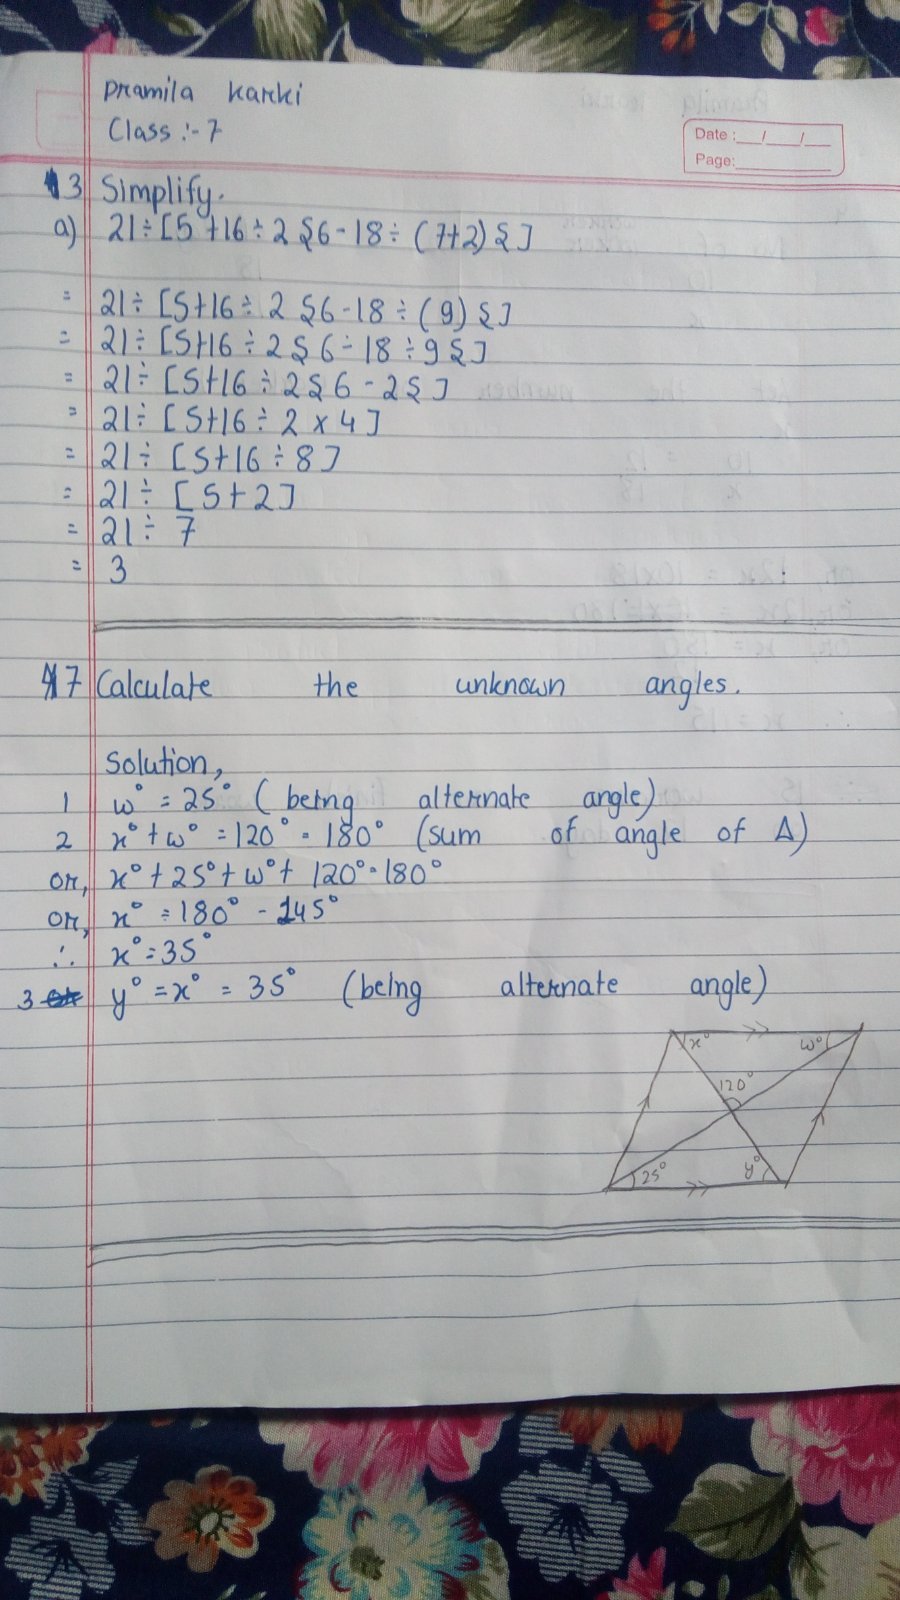 Pramila Karki
Class :- 7
Date : __/__/__
Page:
3 Simplify.
a) 21÷[5+16÷2{6-18÷(7+2)}]
= 21÷[5+16÷2{6-18÷(9)}]
= 21÷[5+16÷2{6-18÷9}]
= 21÷[5+16÷2{6-2}]
= 21÷[5+16÷2×4]
= 21÷[5+16÷8]
= 21÷[5+2]
= 21÷7
= 3
7 Calculate the unknown angles.
Solution,
1 w° = 25° (being alternate angle)
2 x°+w° = 120° = 180° (sum of angle of Δ)
or, x°+25°+w°+120°=180°
or, x° = 180° - 145°
∴ x°=35°
3 y° = x° = 35° (being alternate angle)
x° w°
120°
25° y°